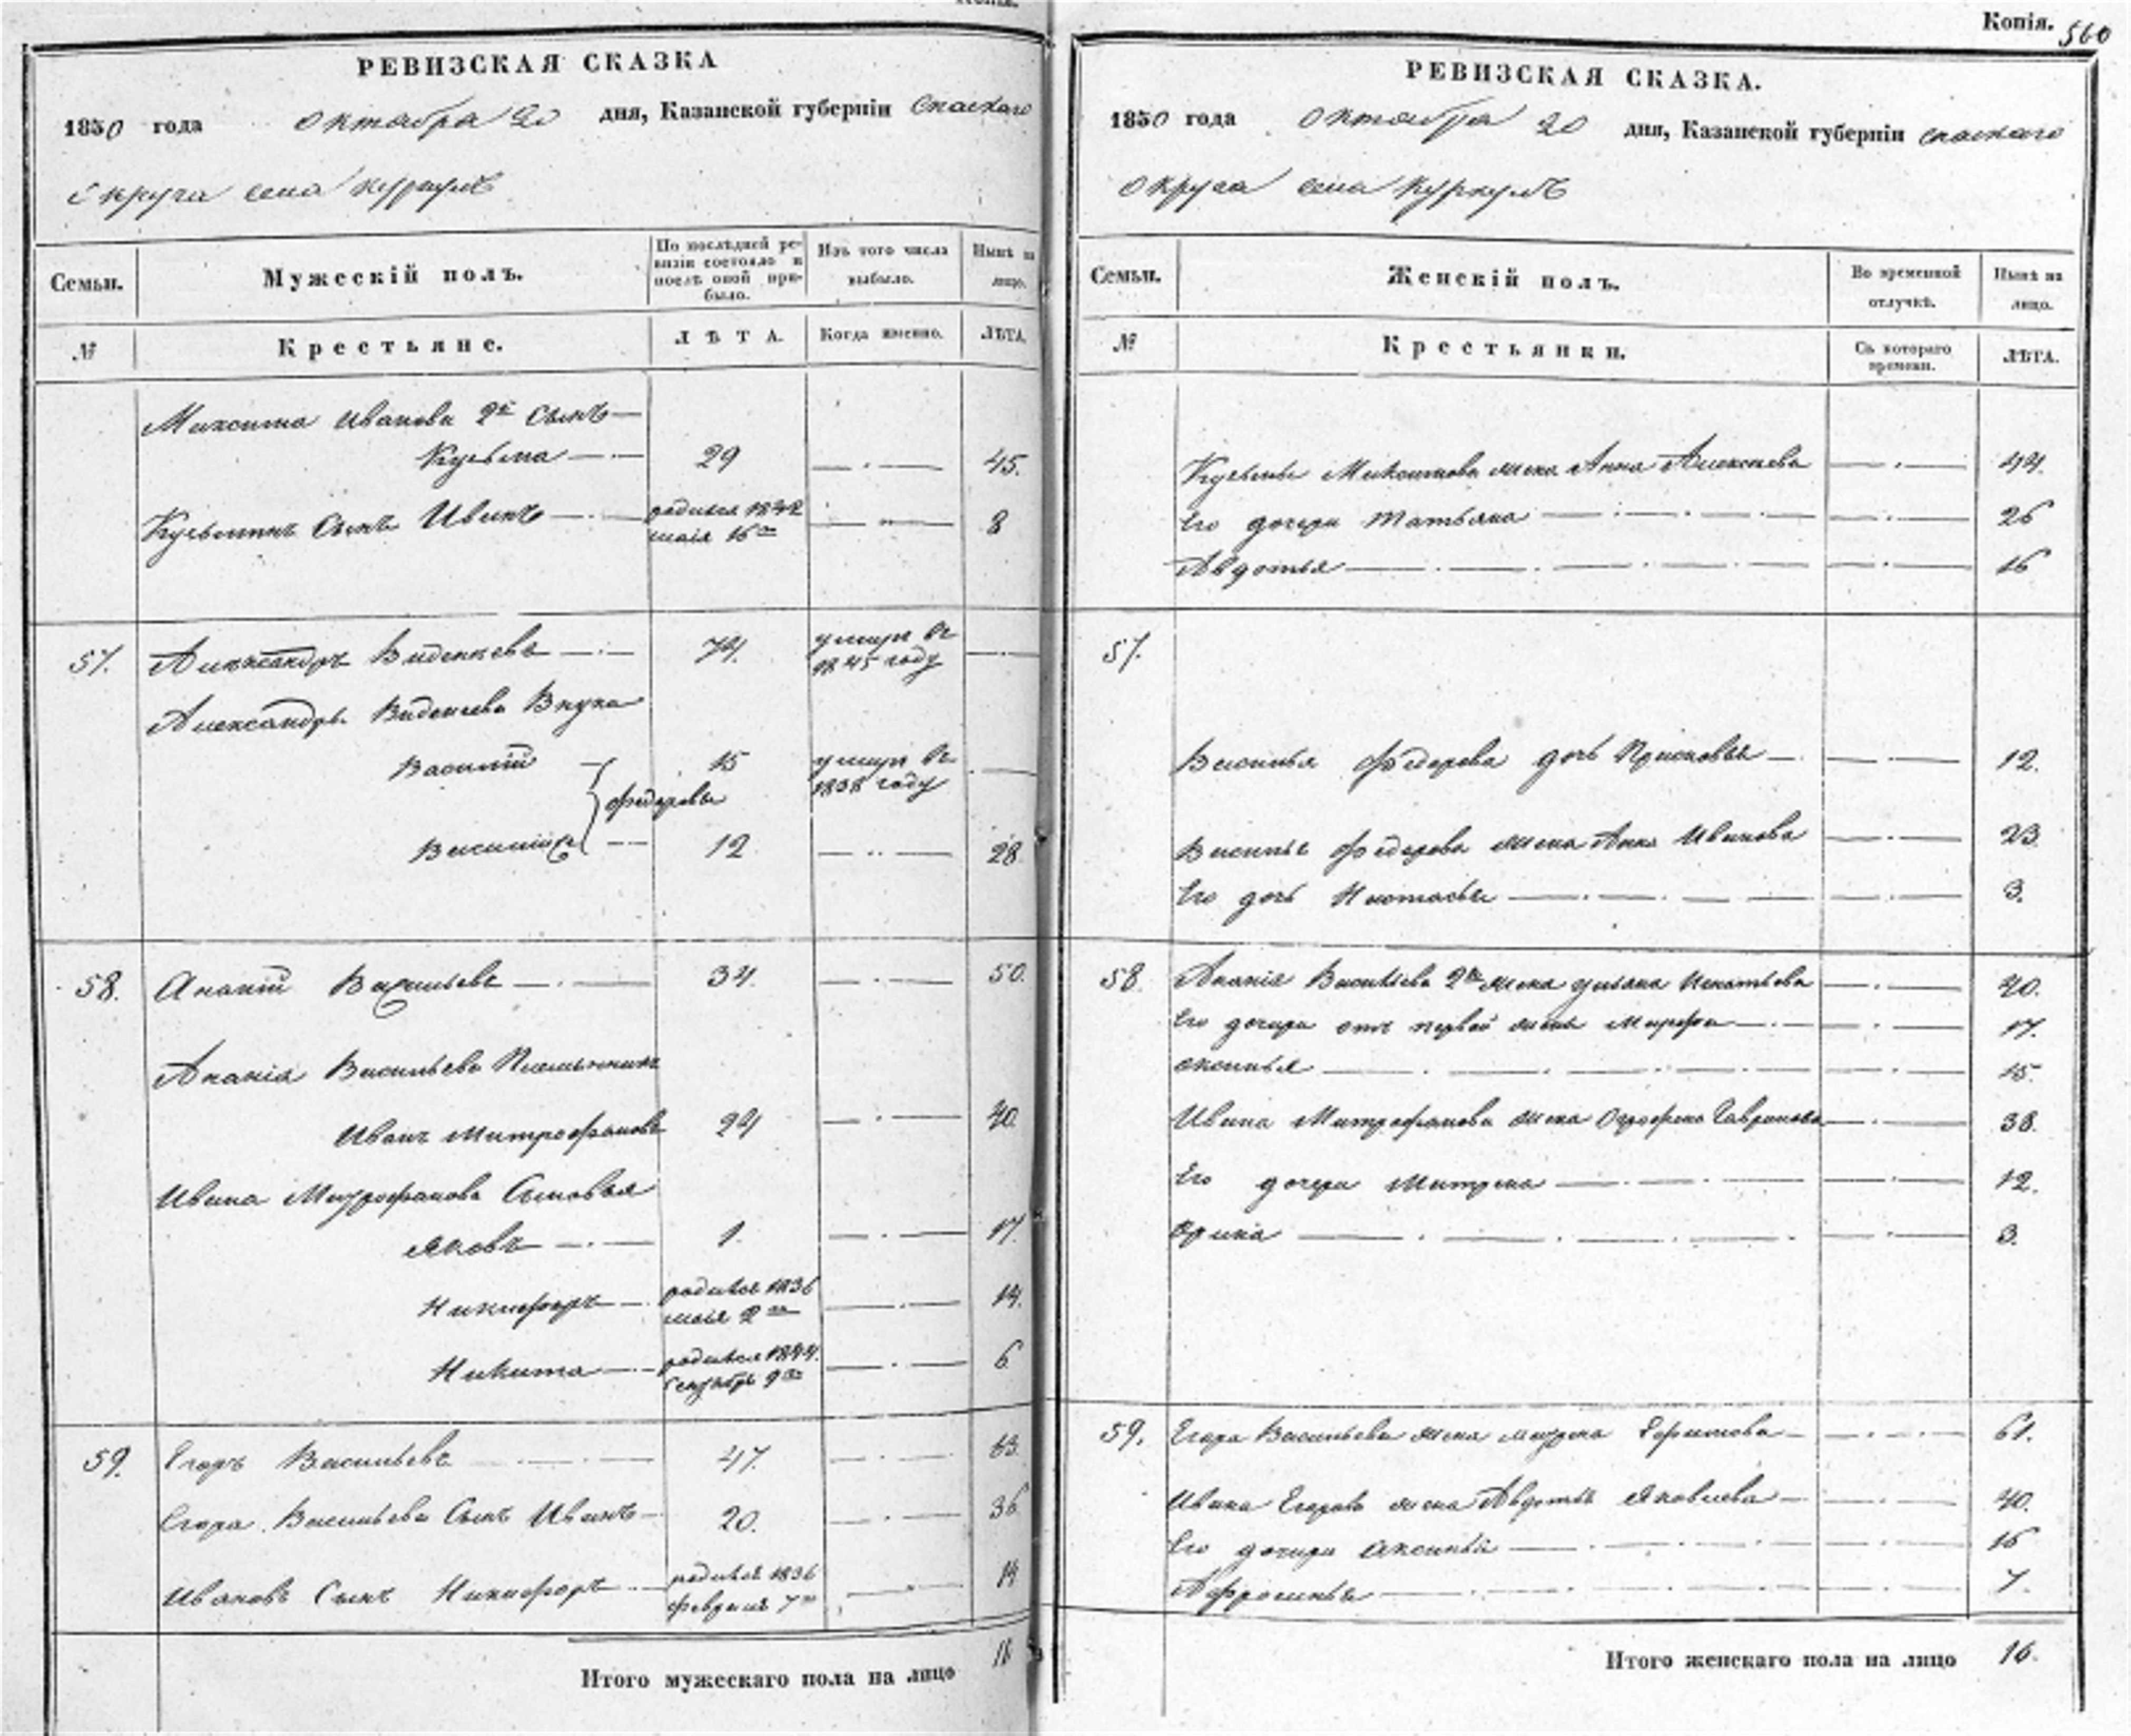 РЕВИЗСКАЯ СКАЗКА
1850 года октября 20 дня, Казанской губерніи Спаскаго
округа села Куркуль
Семьи.
Мужескій полъ.
По послѣдней ревизіи состояло и послѣ оной прибыло.
Изъ того числа выбыло.
Нынѣ на лицо.
№
Крестьяне.
ЛѢТА.
Когда именно.
ЛѢТА.
Максима Иванова 2й сынъ
Кузьма 29 45.
Кузьминъ сынъ Иванъ родился 1842 маія 16го 8
57. Александръ 74. умеръ въ 1845 году
Александра Внука
Василій 15 умеръ въ 1838 году
Федоровы
Василій 12 28
58. Ананій Васильевъ 34. 50.
Ананія Васильева Племянникъ
Иванъ Митрофановъ 24 40.
Ивана Митрофанова Сыновья
Яковъ 1. 17.
Никифоръ родился 1836 маія 2го 14.
Никита родился 1844. Сентября 9го 6
59. Егоръ Васильевъ 47. 63.
Егора Васильева Сынъ Иванъ 20. 36
Ивановъ Сынъ Никифоръ родился 1836 февраля 7го 14
Итого мужескаго пола на лицо 11
Копія. 560
РЕВИЗСКАЯ СКАЗКА.
1850 года Октября 20 дня, Казанской губерніи Спаскаго
округа села Куркуль
Семьи.
Женскій полъ.
Во временной отлучкѣ.
Нынѣ на лицо.
№
Крестьянки.
Съ котораго времени.
ЛѢТА.
Кузьмы Максимова жена Анна Алексѣева 44.
Его дочери Татьяна 26
Авдотья 16
57.
Василья Федорова дочь Прасковья 12.
Василья Федорова жена Анна Иванова 23.
Его дочь Настасья 3.
58. Ананія Васильева 2я жена Ульяна Игнатьева 40.
Его дочери отъ первой жены Марфа 17.
Аксинья 15.
Ивана Митрофанова жена Огрофена Гаврилова 38.
Его дочери Матрена 12.
Орина 3.
59. Егора Васильева жена Матрена Ефимова 61.
Ивана Егорова жена Авдотья Яковлева 40.
Его дочери Аксинья 16
Афросинья 7.
Итого женскаго пола на лицо 16.